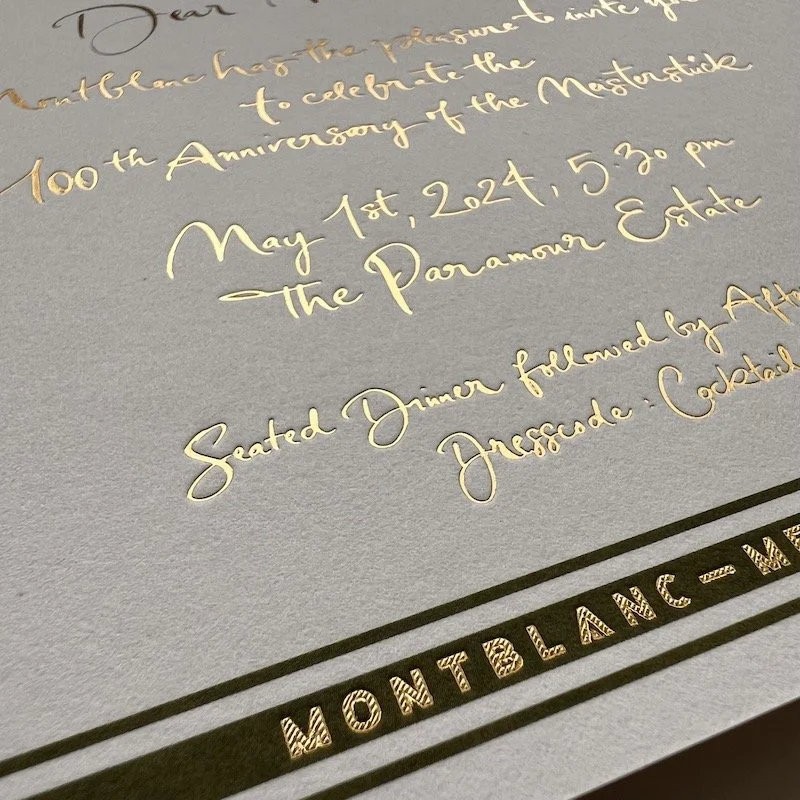 Dear
Montblanc has the pleasure to invite you
to celebrate the
100th Anniversary of the Masterstück
May 1st, 2024, 5.30 pm
The Paramour Estate
Seated Dinner followed by
Dresscode : Cocktail
MONTBLANC —